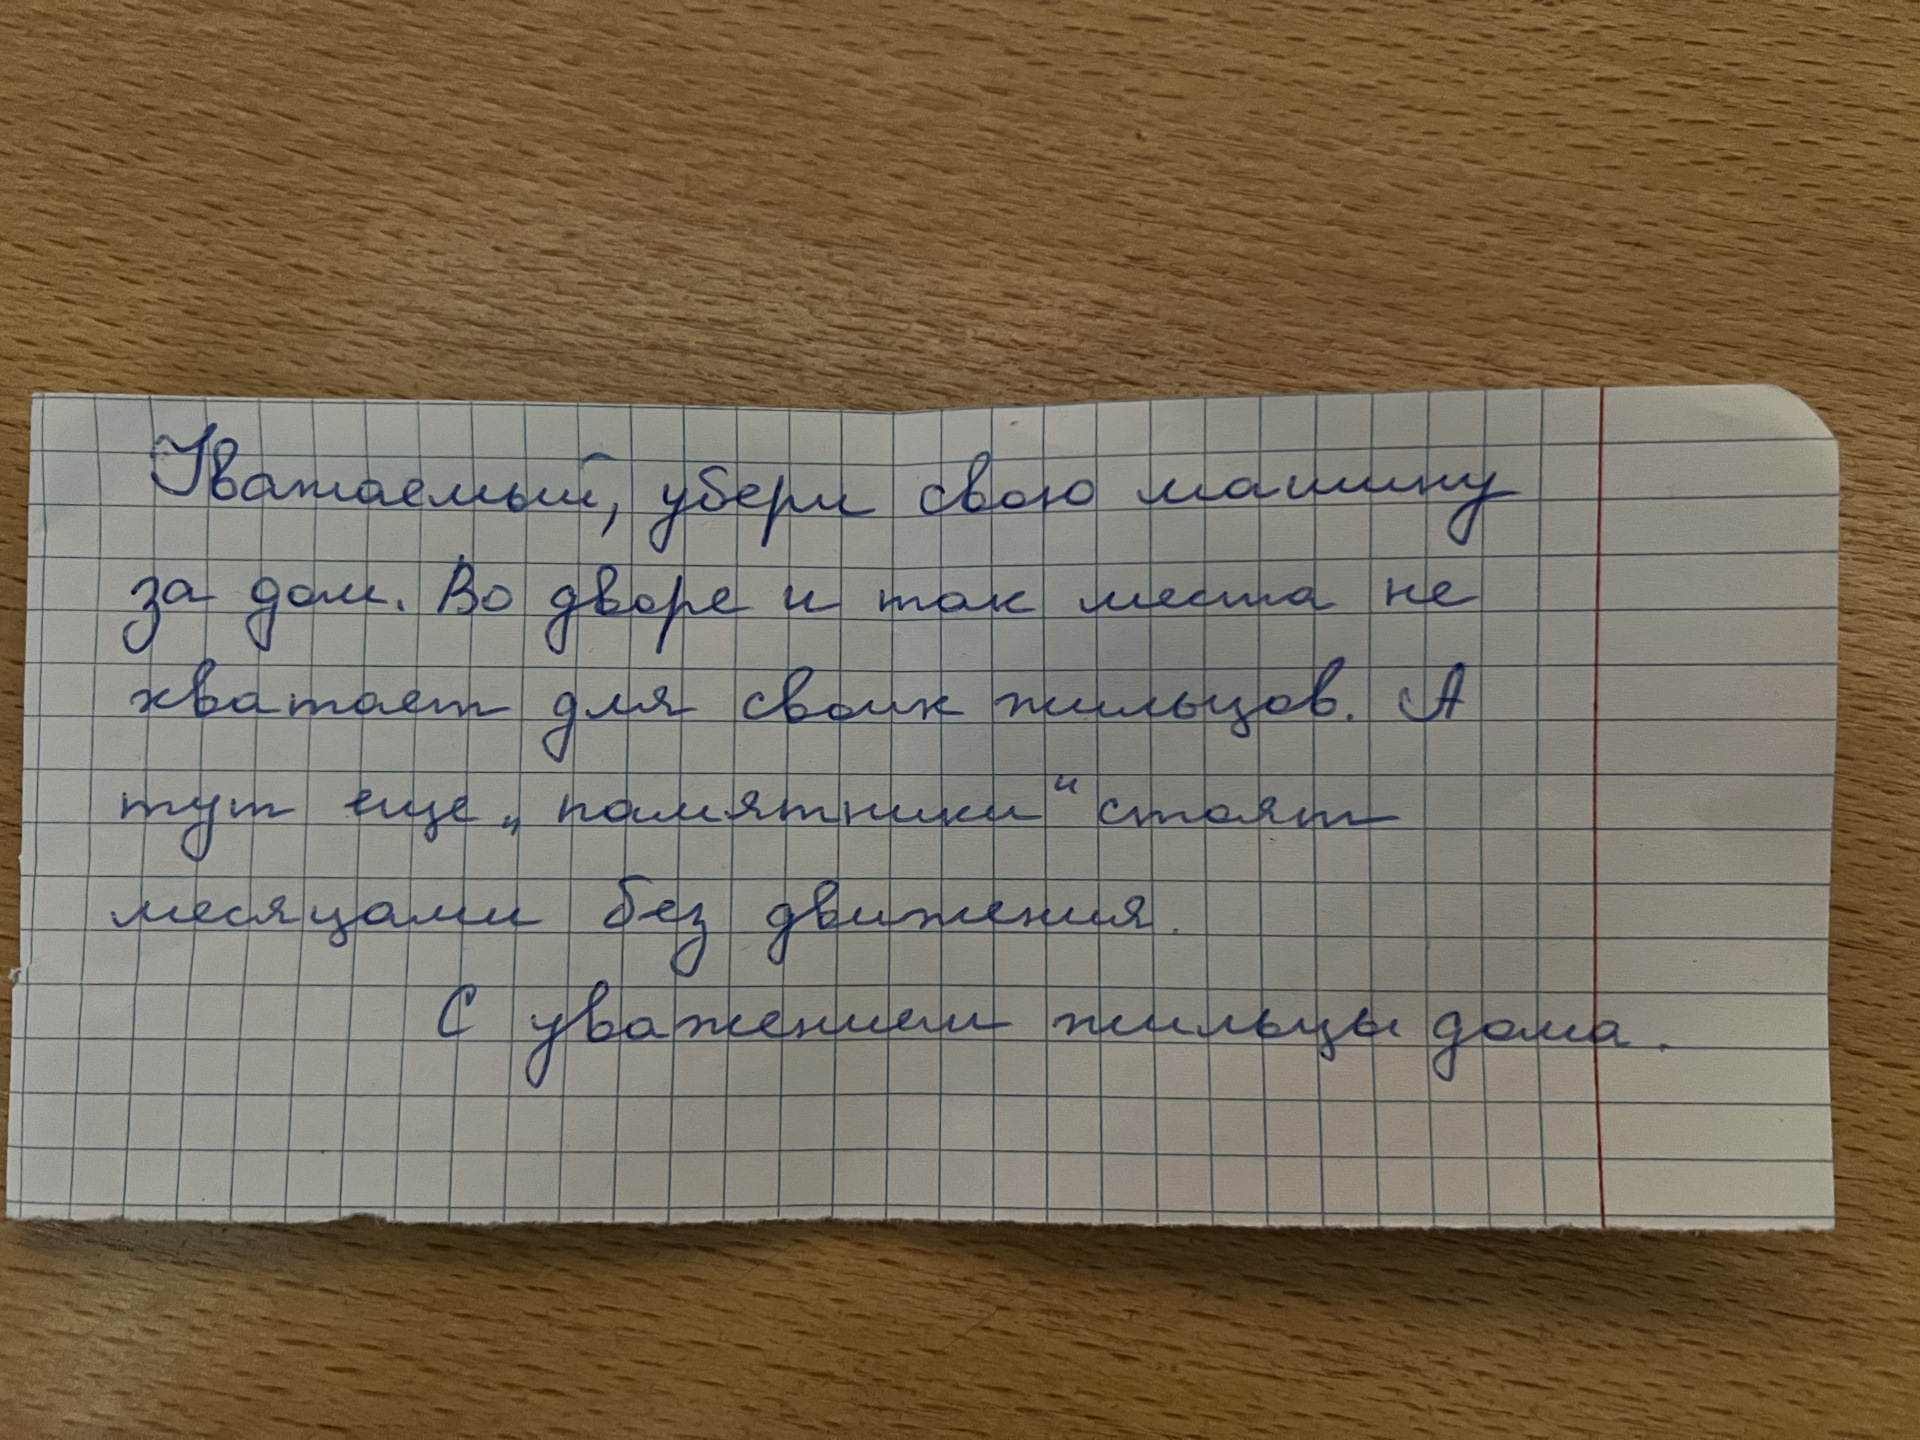 Уважаемый, убери свою машину
за дом. Во дворе и так места не
хватает для своих жильцов. А
тут еще „памятники“ стоят
месяцами без движения.
С уважением жильцы дома.